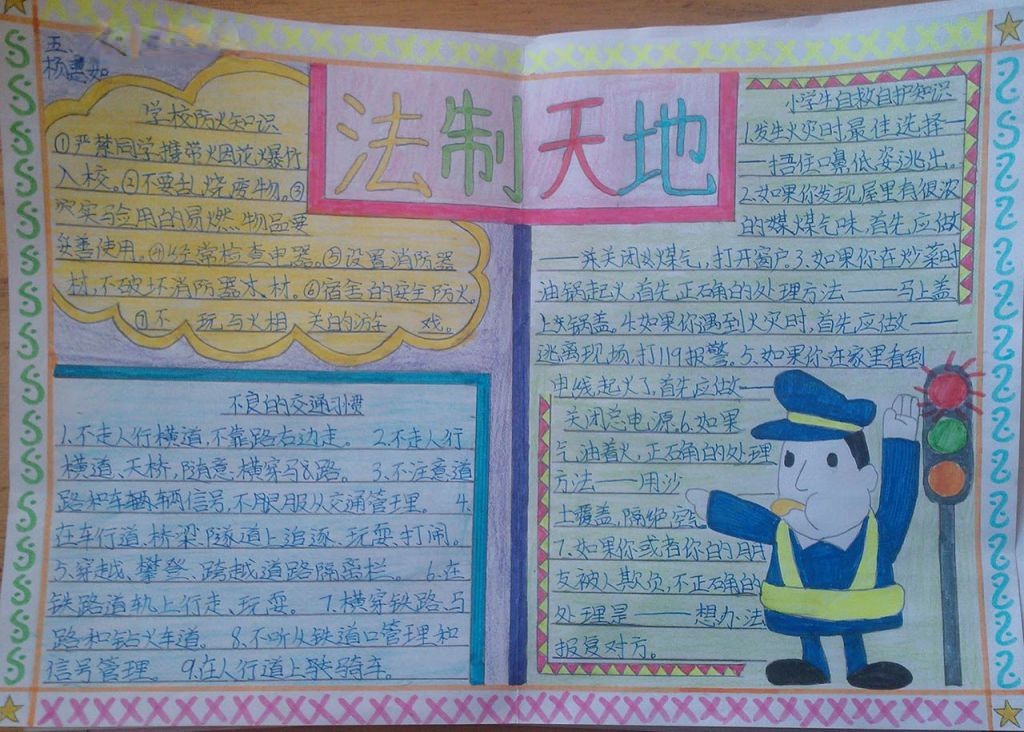 五、
杨惠如
法制天地
学校防火知识
①严禁同学携带烟花爆竹
入校。②不要乱烧废物。③
实验用的易燃物品要
妥善使用。④经常检查电器。⑤设置消防器
材,不破坏消防器材。⑥宿舍的安全防火。
⑦不玩与火相关的游戏。
不良的交通习惯
1.不走人行横道,不靠路右边走。 2.不走人行
横道、天桥,随意横穿马路。 3.不注意道
路和车辆信号,不服从交通管理。 4.
在车行道、桥梁、隧道上追逐、玩耍、打闹。
5.穿越、攀登、跨越道路隔离栏。 6.在
铁路道轨上行走、玩耍。 7.横穿铁路、马
路和钻火车道。 8.不听从铁道口管理和
信号管理。 9.在人行道上骑车。
小学生自救自护知识
1.发生火灾时最佳选择—
—捂住口鼻低姿逃出。
2.如果你发现屋里有很浓
的煤气味,首先应做
——关闭煤气,打开窗户。3.如果你在炒菜时
油锅起火,首先正确的处理方法——马上盖
上锅盖。4.如果你遇到火灾时,首先应做——
逃离现场,打119报警。5.如果你在家里看到
电线起火了首先应做——
关闭总电源.6.如果
气油着火,正确的处理
方法——用沙
土覆盖,隔绝空气
7.如果你或者你的朋
友被人欺负,不正确的
处理是——想办法
报复对方。